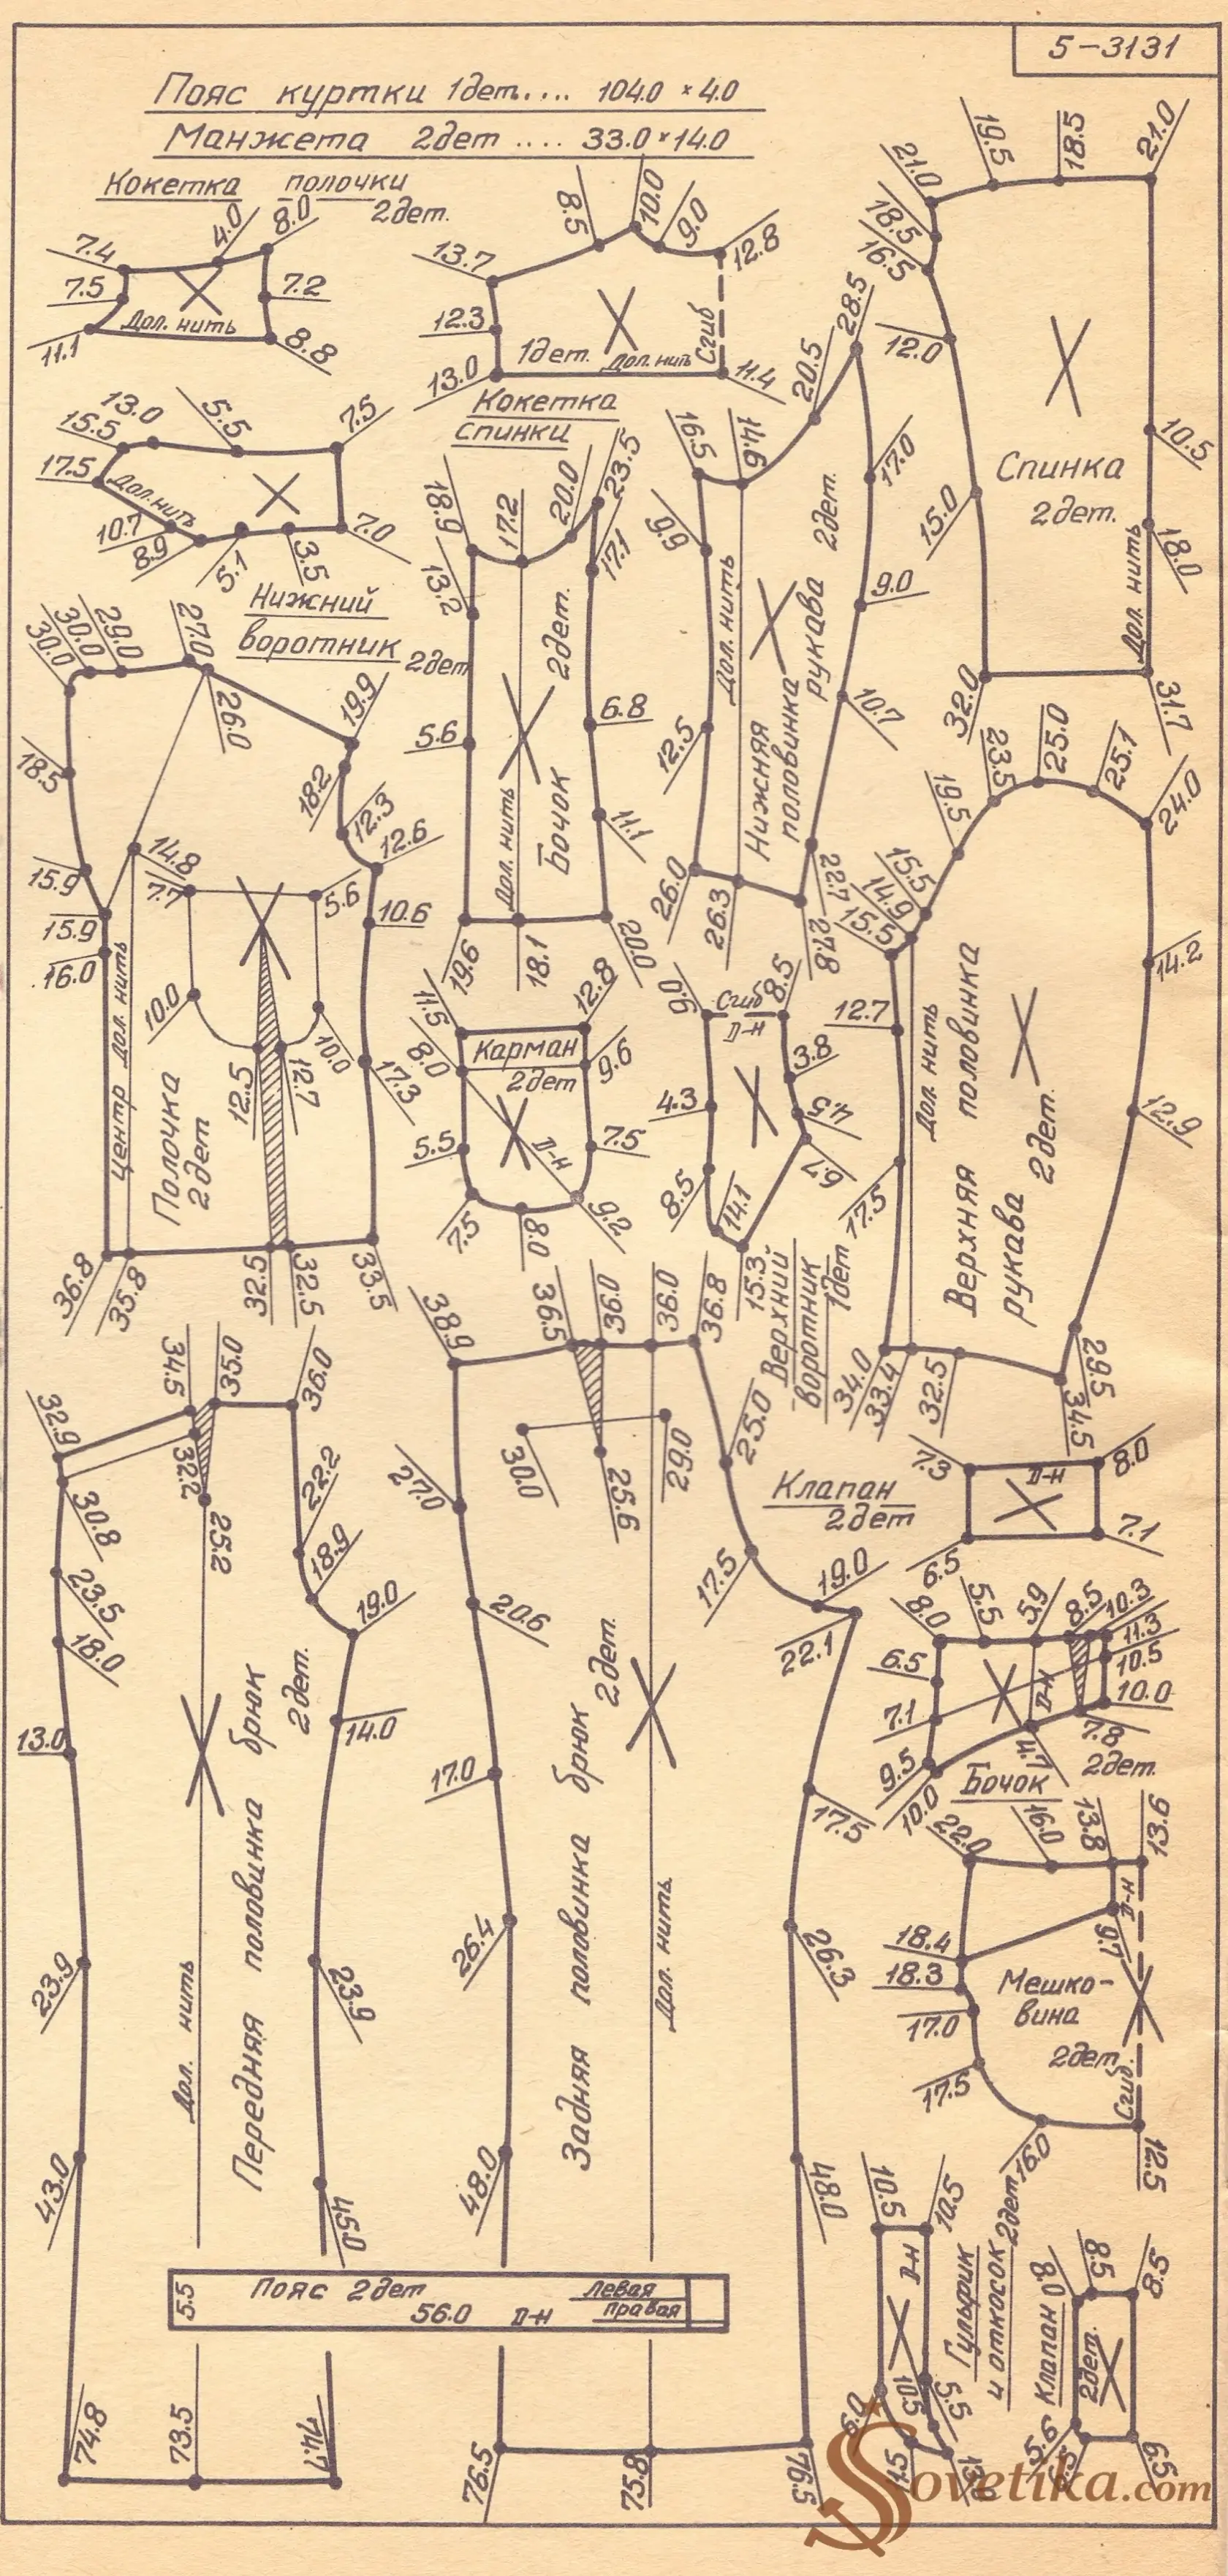 5-3131
Пояс куртки 1дет.... 104.0 × 4.0
Манжета 2дет .... 33.0×14.0
Кокетка полочки
2дет.
7.4
4.0
8.0
7.5
7.2
11.1
Дол. нить
8.8
13.7
8.5
10.0
9.0
12.8
12.3
13.0
1дет.
Дол. нить
Сгиб
11.4
Кокетка
спинки
15.5
13.0
5.5
7.5
17.5
Дол. нить
10.7
8.9
5.1
3.5
7.0
Нижний
воротник 2дет
21.0
19.5
18.5
21.0
18.5
16.5
12.0
15.0
10.5
18.0
Спинка
2дет.
Дол. нить
32.0
31.7
18.9
17.2
20.0
23.5
13.2
17.1
5.6
6.8
11.1
Дол. нить
Бочок
2дет.
19.6
18.1
20.0
16.5
14.6
20.5
28.5
9.9
17.0
9.0
12.5
10.7
Дол. нить
Нижняя
половинка
рукава
2дет.
26.0
26.3
22.7
27.8
30.0
30.0
29.0
27.0
26.0
19.9
18.5
18.2
12.3
12.6
15.9
14.8
7.7
5.6
10.6
15.9
16.0
10.0
12.5
12.7
10.0
17.3
Центр
Дол. нить
Полочка
2дет
36.8
35.8
32.5
32.5
33.5
11.5
12.8
8.0
Карман
2дет
9.6
5.5
Д-н
7.5
7.5
8.0
9.2
9.0
Сгиб
Д-н
8.5
3.8
4.3
4.5
6.7
8.5
14.1
15.3
Верхний
воротник
1дет
23.5
25.0
25.1
24.0
19.5
15.5
14.9
15.5
14.2
12.7
12.9
17.5
Дол. нить
Верхняя
половинка
рукава
2дет.
34.0
33.4
32.5
34.5
29.5
32.9
34.5
35.0
36.0
32.2
30.8
25.2
22.2
18.9
23.5
18.0
19.0
13.0
14.0
23.9
23.9
43.0
45.0
Дол. нить
Передняя половинка брюк
2дет.
74.8
73.5
74.7
38.9
36.5
36.0
36.0
36.8
30.0
25.6
29.0
25.0
27.0
17.5
19.0
22.1
20.6
17.0
17.5
26.4
26.3
48.0
48.0
Задняя половинка брюк
2дет.
Дол. нить
76.5
75.8
76.5
5.5
Пояс 2дет
56.0 Д-н
левая
правая
Клапан
2дет
7.3
Д-н
8.0
6.5
7.1
8.0
5.5
5.9
8.5
10.3
11.3
6.5
10.5
7.1
Д-н
10.0
9.5
4.7
7.8
10.0
Бочок
2дет.
22.0
19.0
13.8
13.6
18.4
Д-н
9.7
18.3
17.0
Мешко-
вина
2дет.
17.5
Сгиб.
16.0
12.5
10.5
10.5
Д-н
Гульфик
и откосок
2дет
6.0
10.5
5.5
8.0
8.5
8.5
Клапан
2дет.
5.6
6.5
Sovetika.com